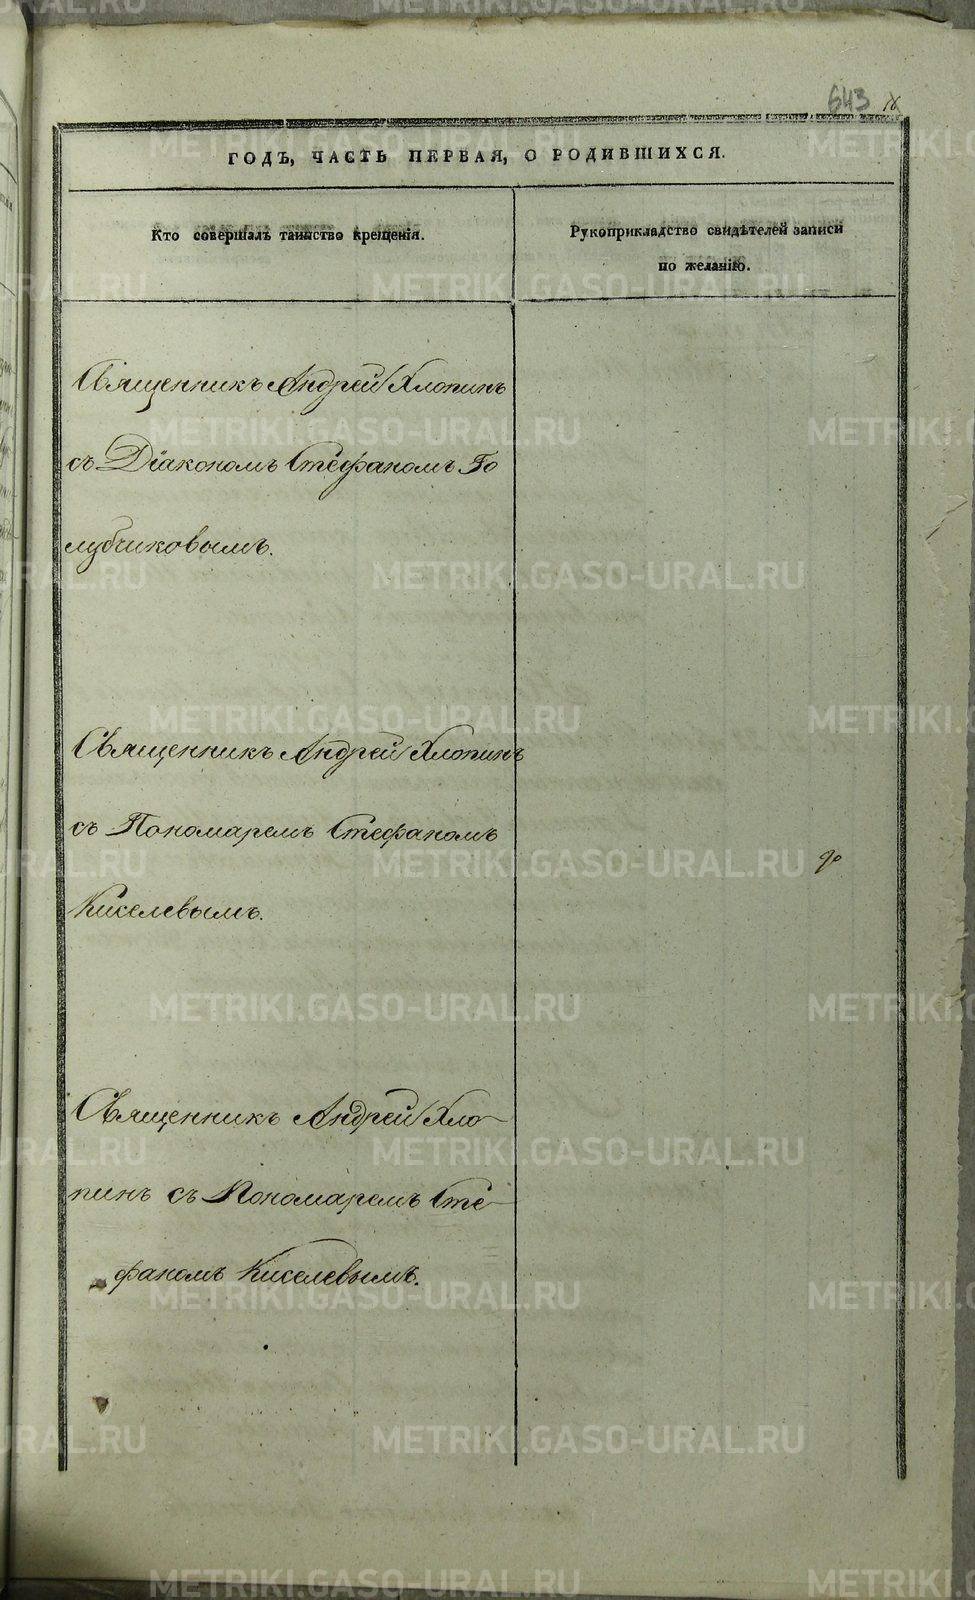 643 16
ГОДЪ, ЧАСТЬ ПЕРВАЯ, О РОДИВШИХСЯ.
Кто совершалъ таинство крещенія.
Рукоприкладство свидѣтелей записи
по желанію.
Священникъ Андрей Хлопинъ
съ Діакономъ Стефаномъ Го
лубчиковымъ.
Священникъ Андрей Хлопинъ
съ Пономаремъ Стефаномъ
Киселевымъ.
Священникъ Андрей Хло-
пинъ съ Пономаремъ Сте-
фаномъ Киселевымъ.
METRIKI.GASO-URAL.RU